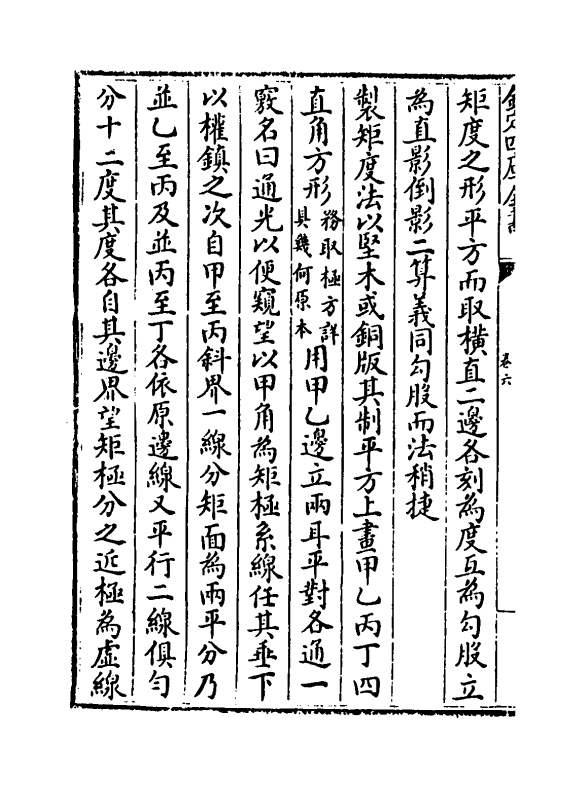 欽定四庫全書
卷六
矩度之形平方而取橫直二邊各刻為度互為勾股立
為直影倒影二算義同勾股而法稍捷
製矩度法以堅木或銅版其制平方上畫甲乙丙丁四
直角方形務取極方詳具幾何原本用甲乙邊立兩耳平對各通一
竅名曰通光以便窺望以甲角為矩極系線任其垂下
以權鎮之次自甲至丙斜界一線分矩面為兩平分乃
並乙至丙及並丙至丁各依原邊線又平行二線俱勻
分十二度其度各自其邊界望矩極分之近極為虛線